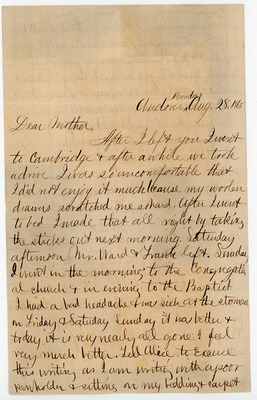 Monday
Andover, Aug. 28,
Dear Mother,
After I left you I went
to Cambridge & after a while we took
a drive. I was so uncomfortable that
I did not enjoy it much because my woolen
drawers scratched me so hard. After I went
to bed I made that all right by taking
the sticks out next morning. Saturday
afternoon Mr. Ward & Frank left. Sunday
I went in the morning to the Congregation
al church & in evening to the Baptist
I had a bad headache & was sick at the stomach
on Friday & Saturday Sunday it was better &
today it is very nearly all gone. I feel
very much better. Tell Alice to excuse
this writing as I am writing with a poor
pen holder & sitting on my bedding & carpet